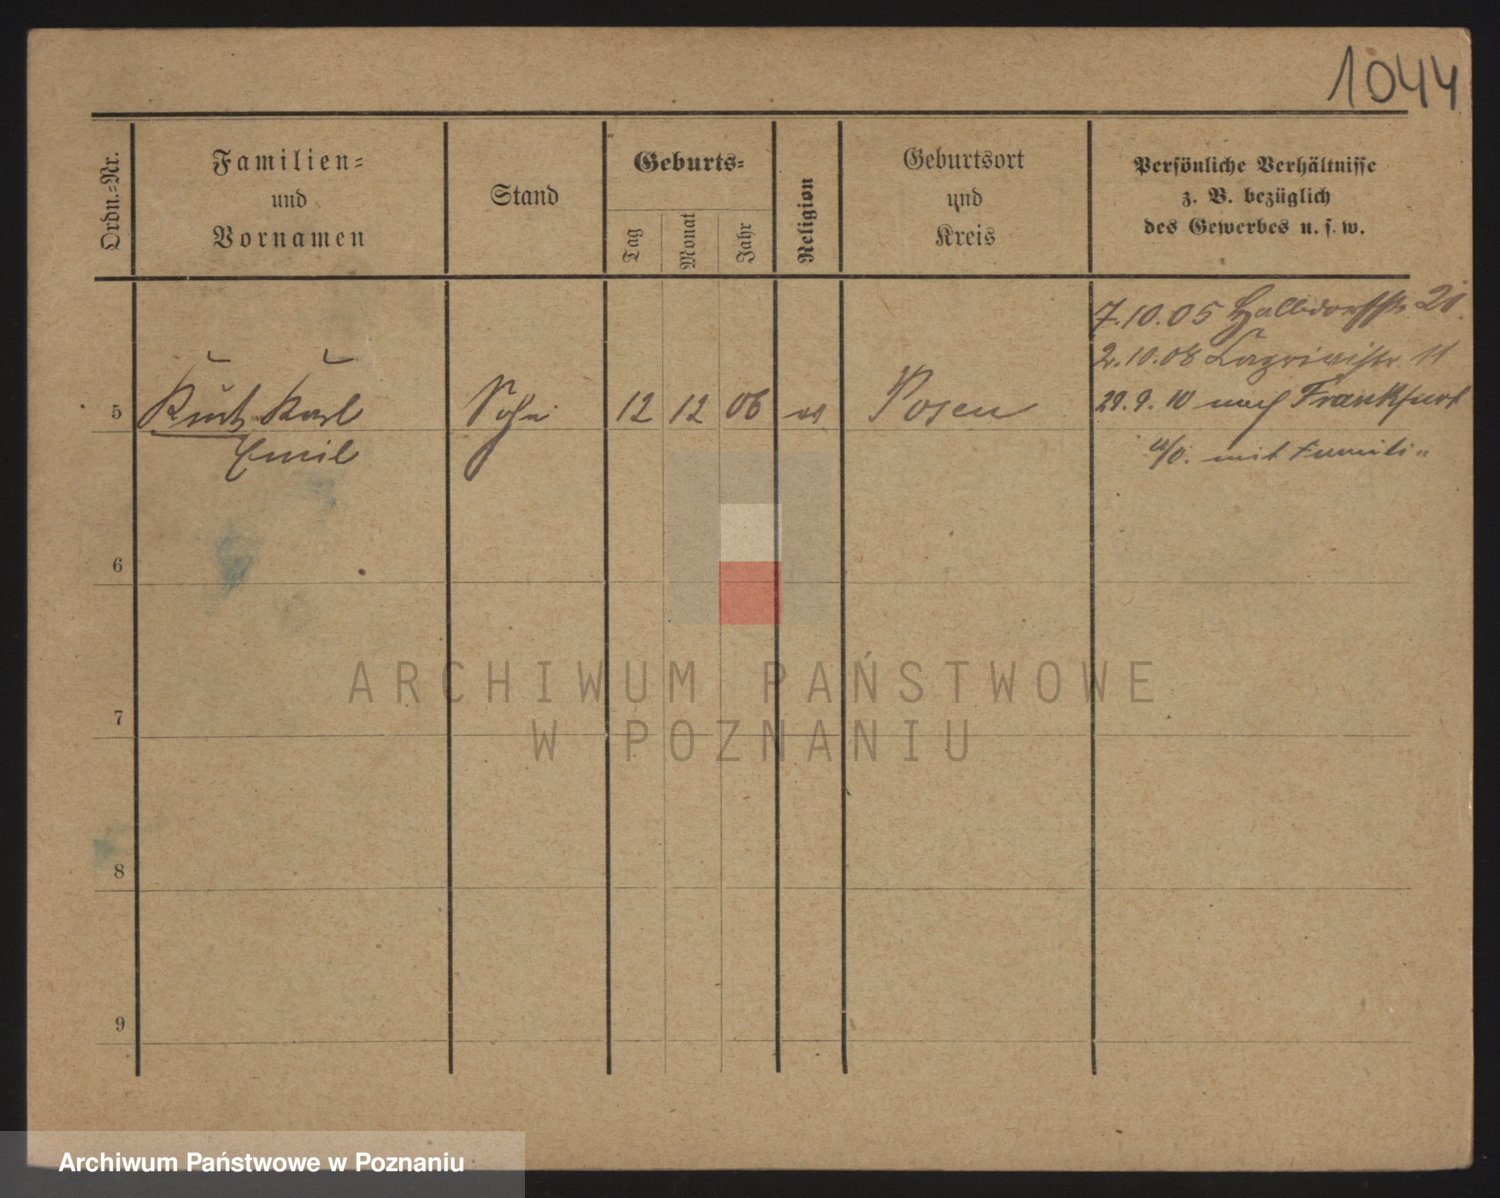 1044
Ordn.=Nr.
Familien=
und
Vornamen
Stand
Geburts=
Tag
Monat
Jahr
Religion
Geburtsort
und
Kreis
Persönliche Verhältnisse
z. B. bezüglich
des Gewerbes u. s. w.
7.10.05 Halbdorfstr.
2.10.08 11
5 Kurt Karl Sohn 12 12 06 Posen 29.9.10 nach Frankfurt
Emil a/O. mit Familie
6
7
8
9
ARCHIWUM PAŃSTWOWE
W POZNANIU
Archiwum Państwowe w Poznaniu